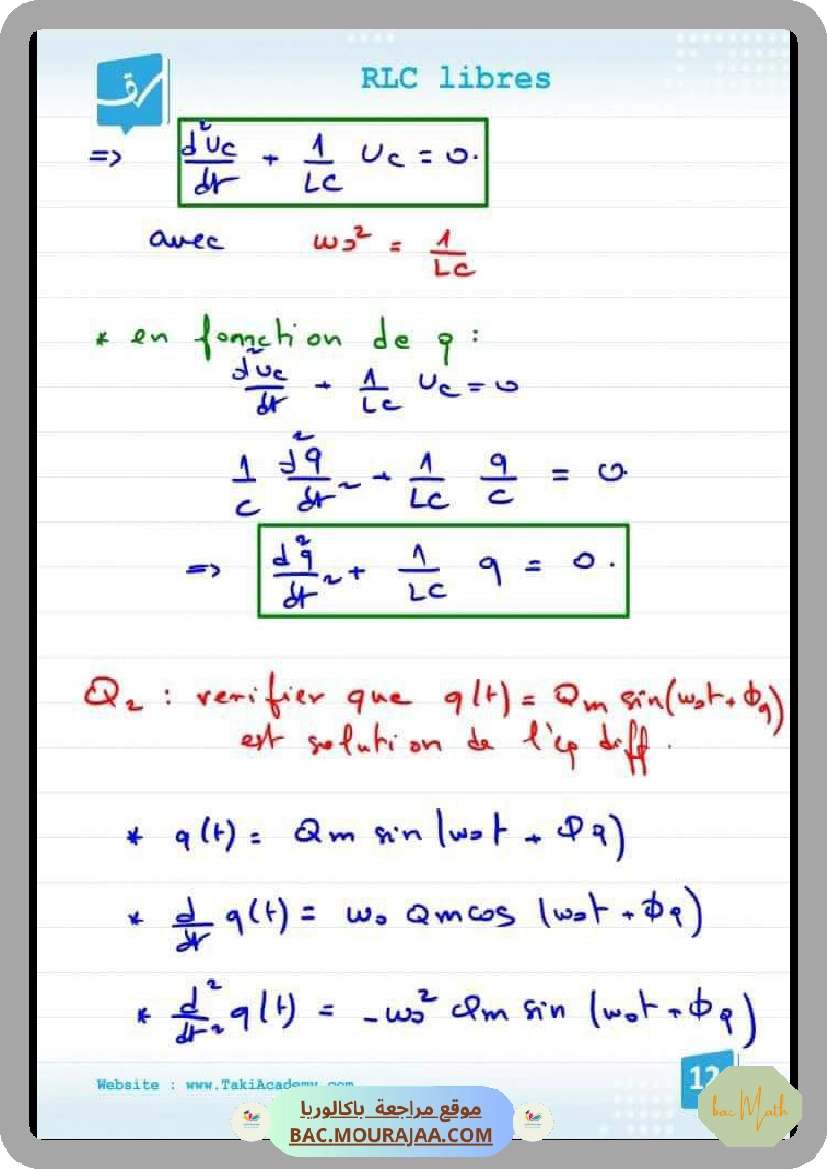 RLC libres
=> d²Uc/dt + 1/LC Uc = 0.
avec ω0² = 1/LC
* en fonction de q :
d²Uc/dt + 1/LC Uc = 0
1/C d²q/dt² + 1/LC q/C = 0.
=> d²q/dt² + 1/LC q = 0.
Q2 : verifier que q(t) = Qm sin(ω0t + ϕq)
est solution de l'éq diff.
* q(t) = Qm sin (ω0t + φq)
* d/dt q(t) = ω0 Qm cos (ω0t + ϕq)
* d²/dt² q(t) = -ω0² Qm sin (ω0t + ϕq)
Website : www.TakiAcademy.com
12
موقع مراجعة باكالوريا
BAC.MOURAJAA.COM
bac Math